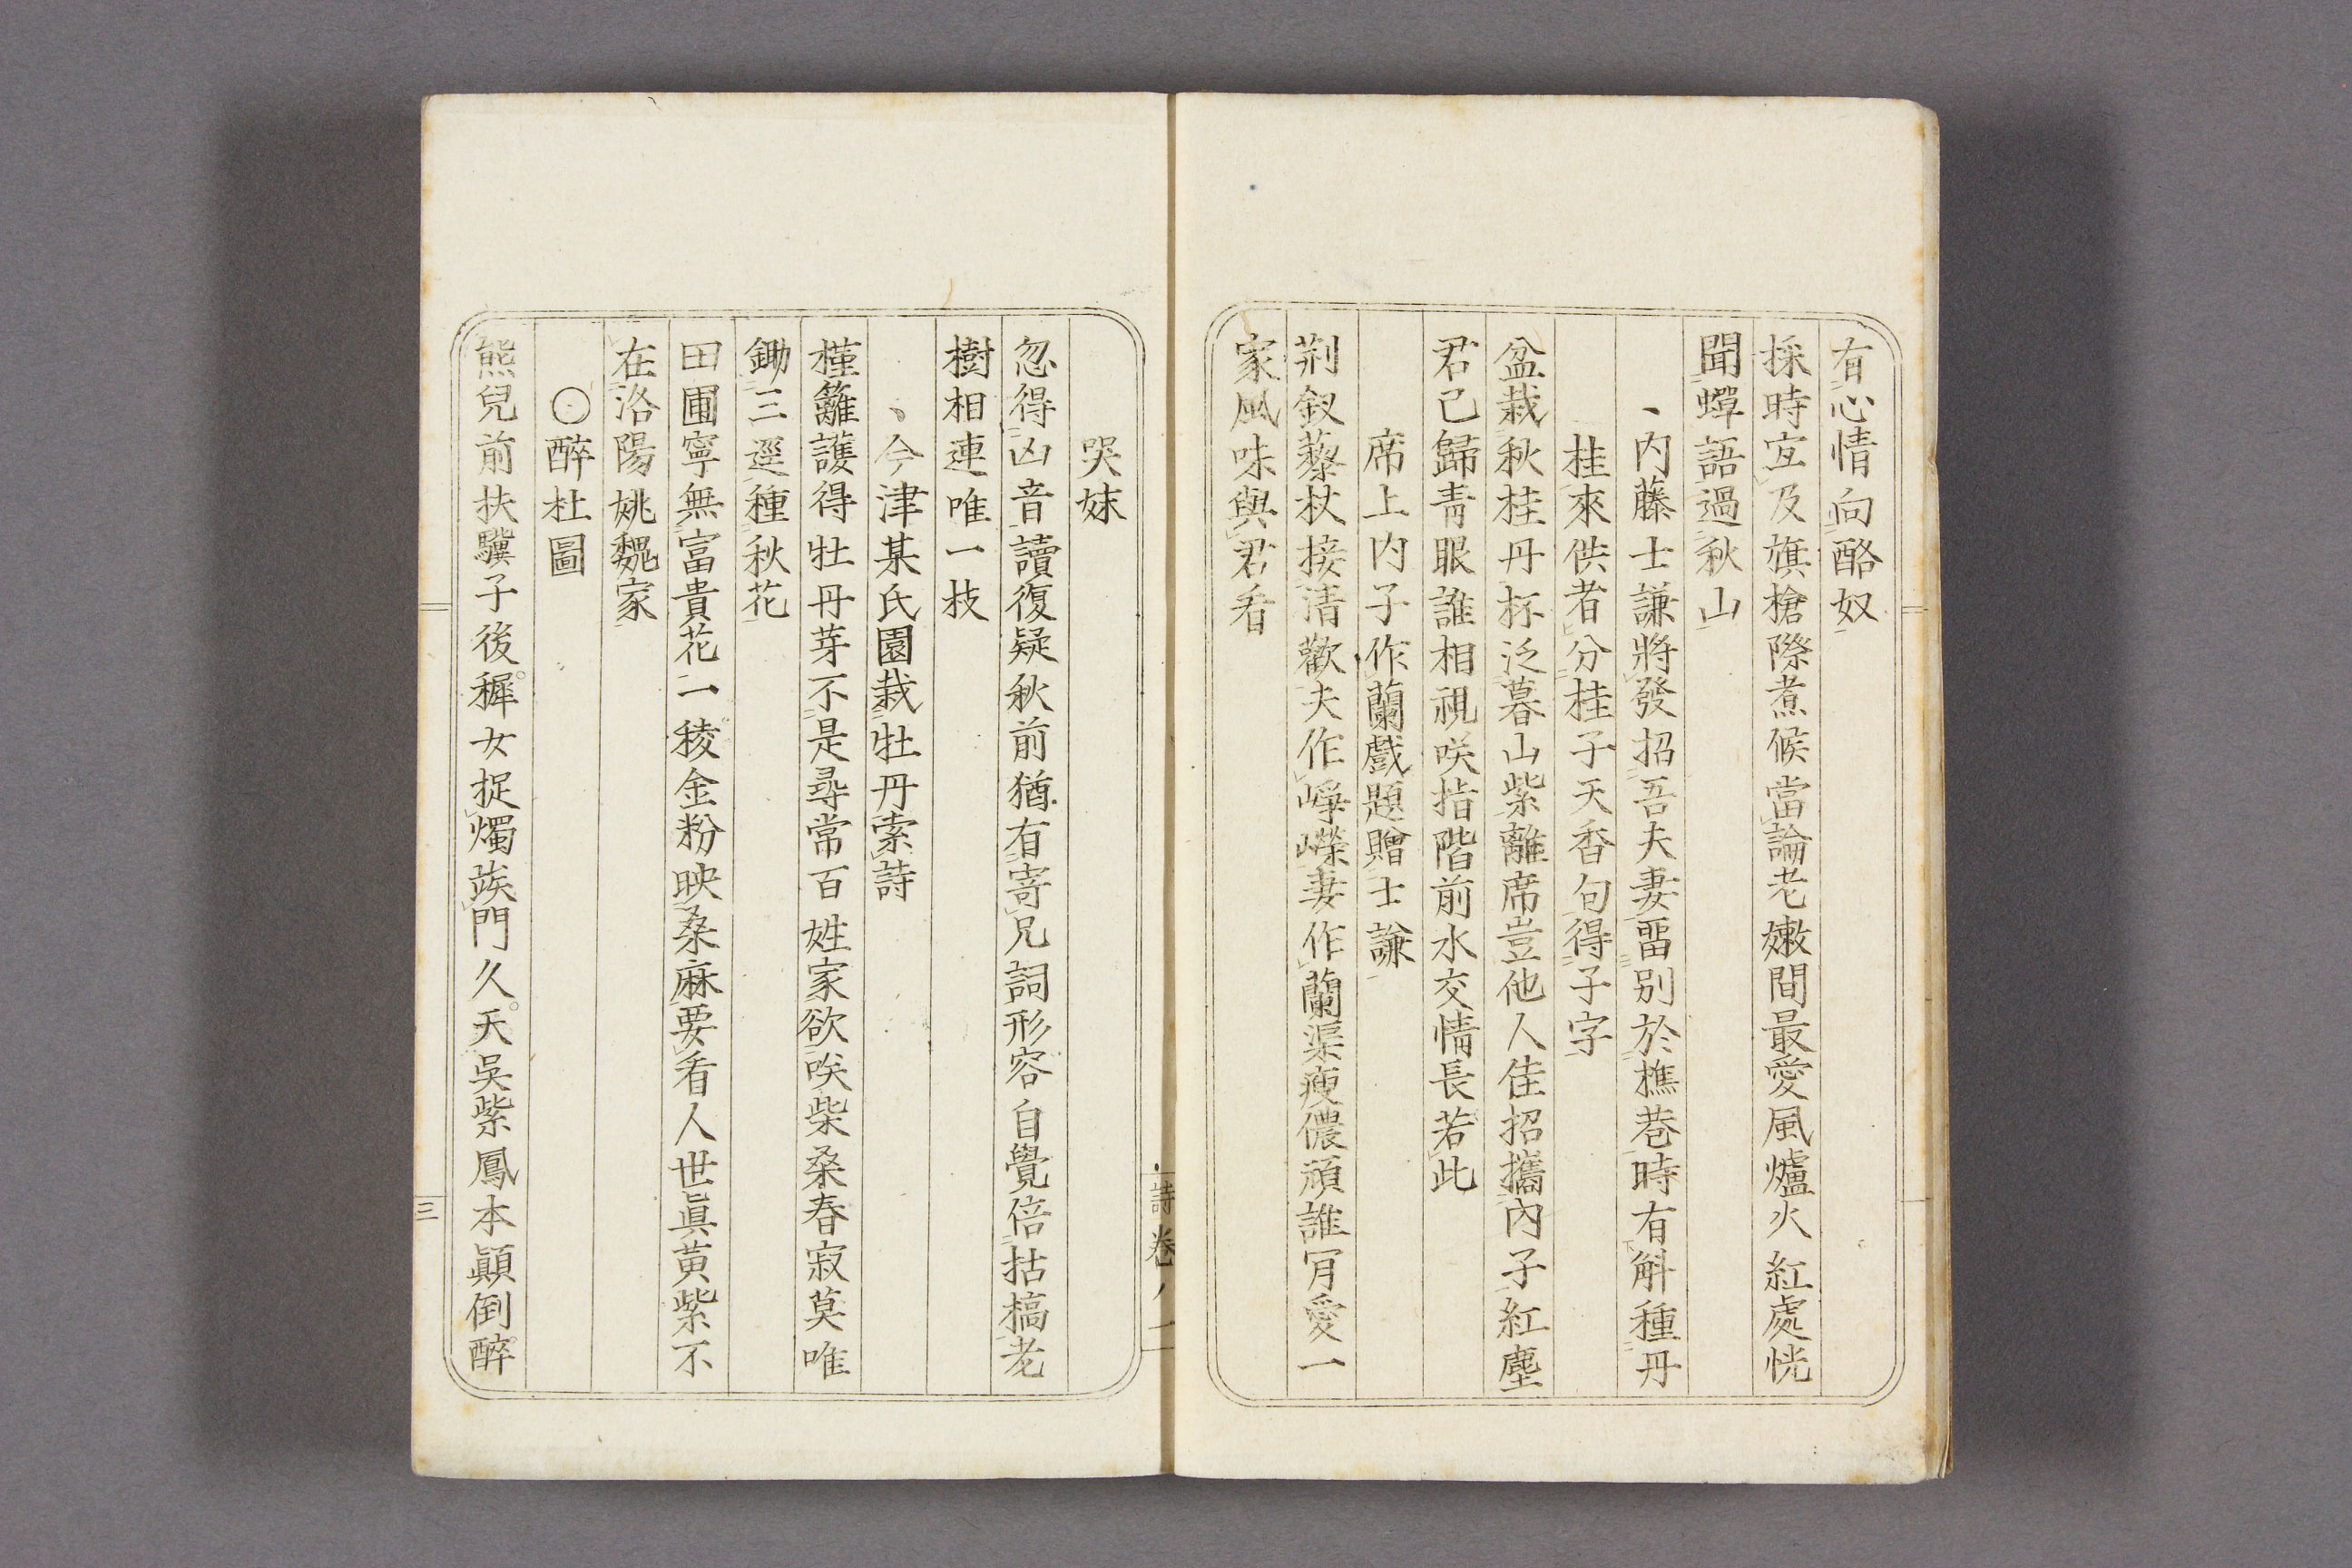 有心情向酪奴
採時宐及旗槍際煮候當論老嫩間最愛風爐火紅處恍
聞蟬語過秋山
、内藤士謙將發招吾夫妻畱別於樵巷時有斛種丹
桂來供者分桂子天香句得子字
盆栽秋桂丹杯泛暮山紫離席豈他人佳招攜內子紅塵
君已歸靑眼誰相視咲指階前水交情長若此
席上內子作蘭戲題贈士謙
荆釵藜杖接清歡夫作崢嶸妻作蘭渠瘦儂頑誰肎愛一
家風味與君看
詩卷八
哭妹
忽得凶音讀復疑秋前猶有寄兄詞形容自覺倍枯槁老
樹相連唯一枝
、今津某氏園栽牡丹索詩
槿籬護得牡丹芽不是尋常百姓家欲唉柴桑春寂莫唯
鋤三逕種秋花
田圃寧無富貴花一稜金粉映桑麻要看人世眞黃紫不
在洛陽姚魏家
〇醉杜圖
熊兒前扶驥子後穉女捉燭竢門久天吳紫鳳本顚倒醉
三